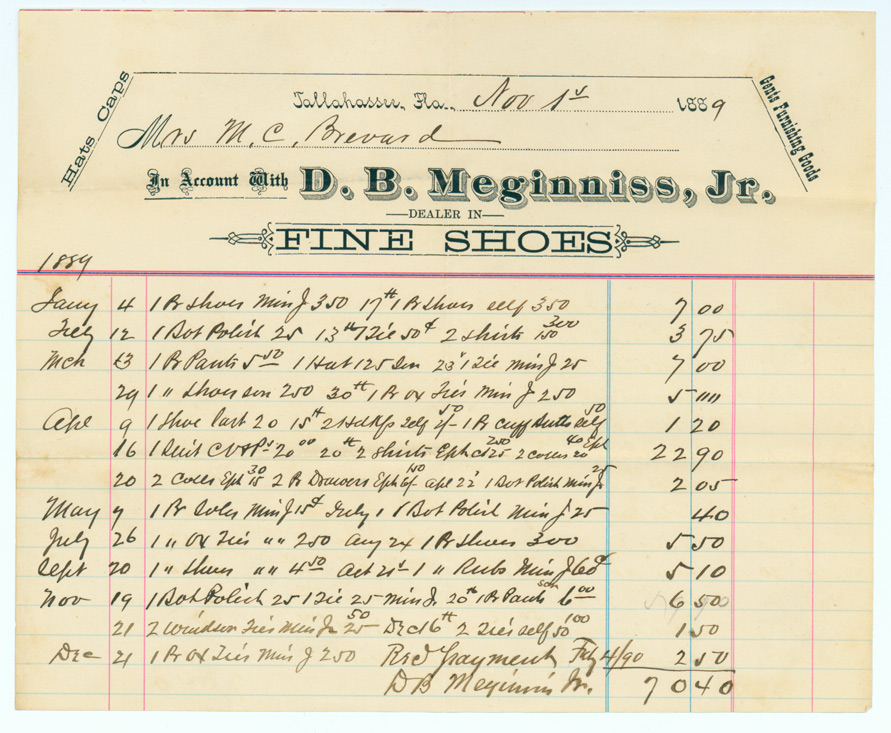 Hats Caps
Gents Furnishing Goods
Tallahassee, Fla., Nov 1st 1889
Mrs M. C. Brevard
In Account With D. B. Meginniss, Jr.
DEALER IN
FINE SHOES
1889
Jany 4 1 Pr Shoes Min J 350 17th 1 Pr Shoes self 350 7 00
Feby 12 1 Bot Polish 25 13th 1 Tie 50c 2 Shirts 150 300 3 75
Mch 13 1 Pr Pants 5 50 1 Hat 125 Son 23d 1 Tie Min J 25 7 00
29 1 " Shoes son 250 30th 1 Pr Ox Ties Min J 250 5 "
Apl 9 1 Shoe Last 20 15th 2 Hdkfs self 25 50 1 Pr Cuff Butts self 50 1 20
16 1 Suit C V & Ps 20 00 20th 2 Shirts Eph 125 250 2 Colls 20 40 Eph 22 90
20 2 Colls Eph 15 30 2 Pr Drawers Eph 150 Apl 22d 1 Bot Polish Min J 25 2 05
May 7 1 Pr Soles Min J 15c July 1 1 Bot Polish Min J 25 40
July 26 1 " Ox Ties " " 250 Aug 24 1 Pr Shoes 300 5 50
Sept 20 1 " Shoes " " 4 50 Oct 21st 1 " Rubs Min J 60c 5 10
Nov 19 1 Bot Polish 25 1 Tie 25 Min Jr 20th 1 Pr Pants son 6 00 6 50
21 2 Windsor Ties Min Jr 25 50 Dec 16th 2 Ties self 50 1 00 1 50
Dec 21 1 Pr Ox Ties Min J 250 Recd Payment Feby 4/90 2 50
D B Meginniss Jr. 70 40